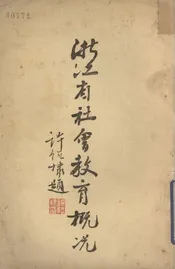 浙江省社會教育概況
許紹棣題